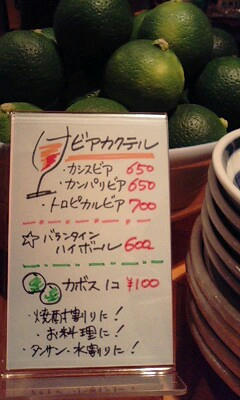 ビアカクテル
・カシスビア 650
・カンパリビア 650
・トロピカルビア 700
☆ バランタイン
ハイボール 600
カボス 1コ ¥100
・焼酎割りに!
・お料理に!
・タンサン・水割りに!